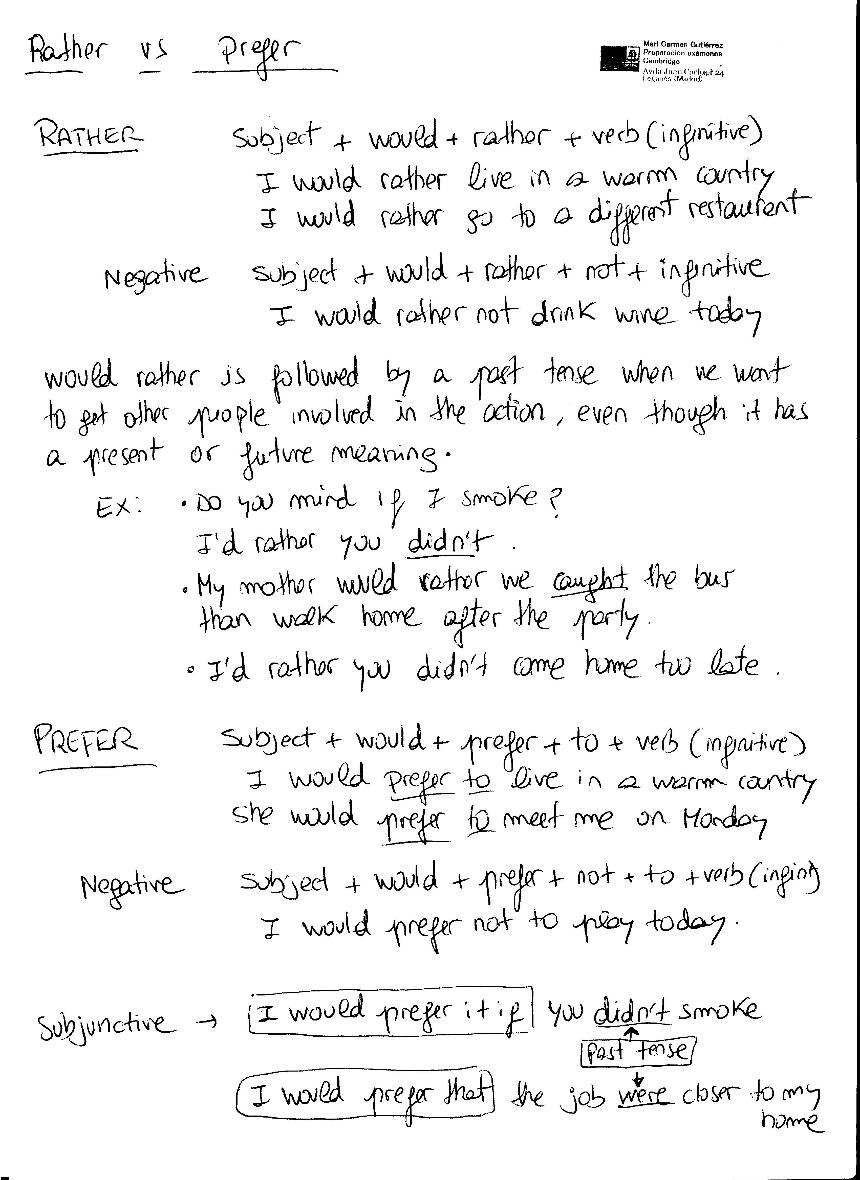 Rather vs Prefer
Mari Carmen Gutiérrez
Preparación exámenes
Cambridge
Avda Juan Carlos I 24
Leganés (Madrid)
RATHER subject + would + rather + verb (infinitive)
I would rather live in a warm country
I would rather go to a different restaurant
Negative subject + would + rather + not + infinitive
I would rather not drink wine today
would rather is followed by a past tense when we want
to get other people involved in the action, even though it has
a present or future meaning.
EX: • Do you mind if I smoke?
I'd rather you didn't.
• My mother would rather we caught the bus
than walk home after the party.
• I'd rather you didn't come home too late.
PREFER subject + would + prefer + to + verb (infinitive)
I would prefer to live in a warm country
she would prefer to meet me on Monday
Negative subject + would + prefer + not + to + verb (infin)
I would prefer not to play today.
Subjunctive → I would prefer it if you didn't smoke
Past tense
I would prefer that the job were closer to my
home